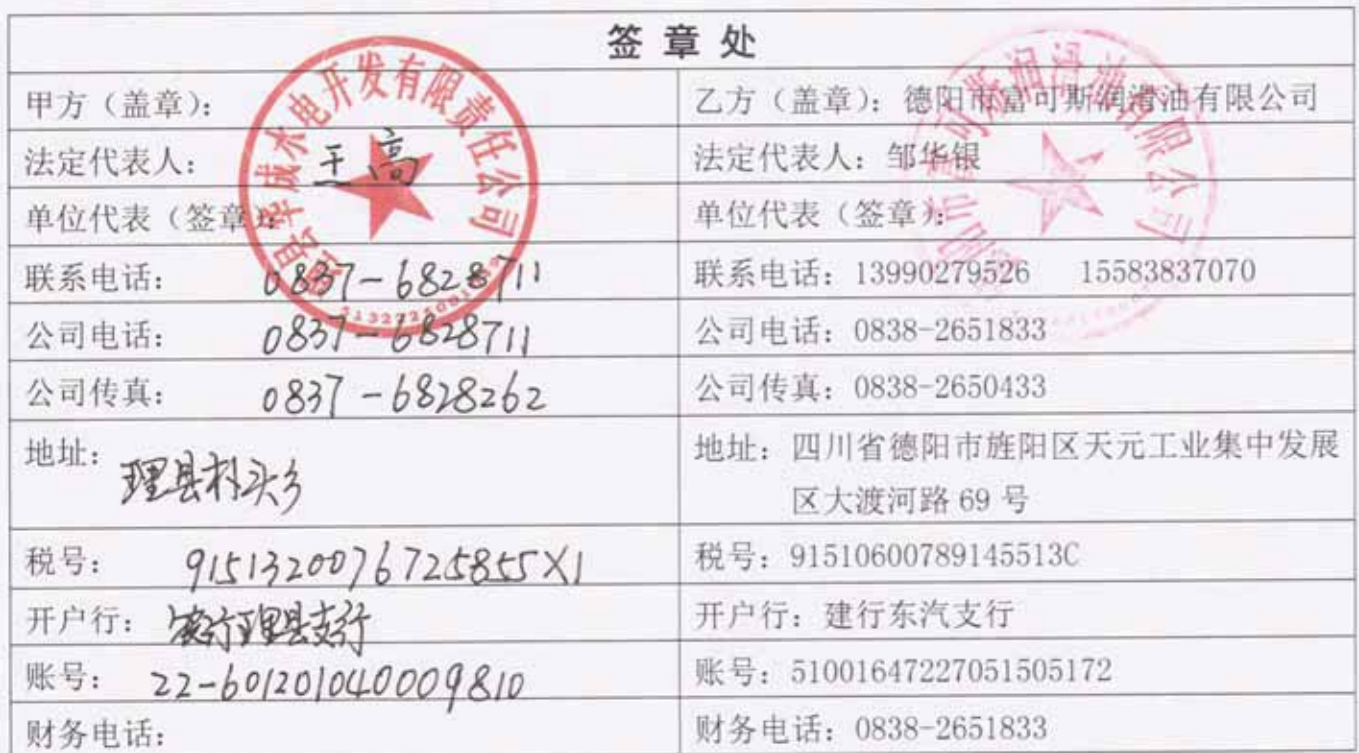 签章处
甲方（盖章）：
乙方（盖章）：德阳市富可斯润滑油有限公司
法定代表人：王高
法定代表人：邹华银
单位代表（签章）：
单位代表（签章）：
联系电话：0837-6828711
联系电话：13990279526 15583837070
公司电话：0837-6828711
公司电话：0838-2651833
公司传真：0837-6828262
公司传真：0838-2650433
地址：理县朴头乡
地址：四川省德阳市旌阳区天元工业集中发展
区大渡河路 69 号
税号：9151320076725855X1
税号：91510600789145513C
开户行：农行理县支行
开户行：建行东汽支行
账号：22-601201040009810
账号：51001647227051505172
财务电话：
财务电话：0838-2651833
理县华成水电开发有限责任公司
德阳市富可斯润滑油有限公司